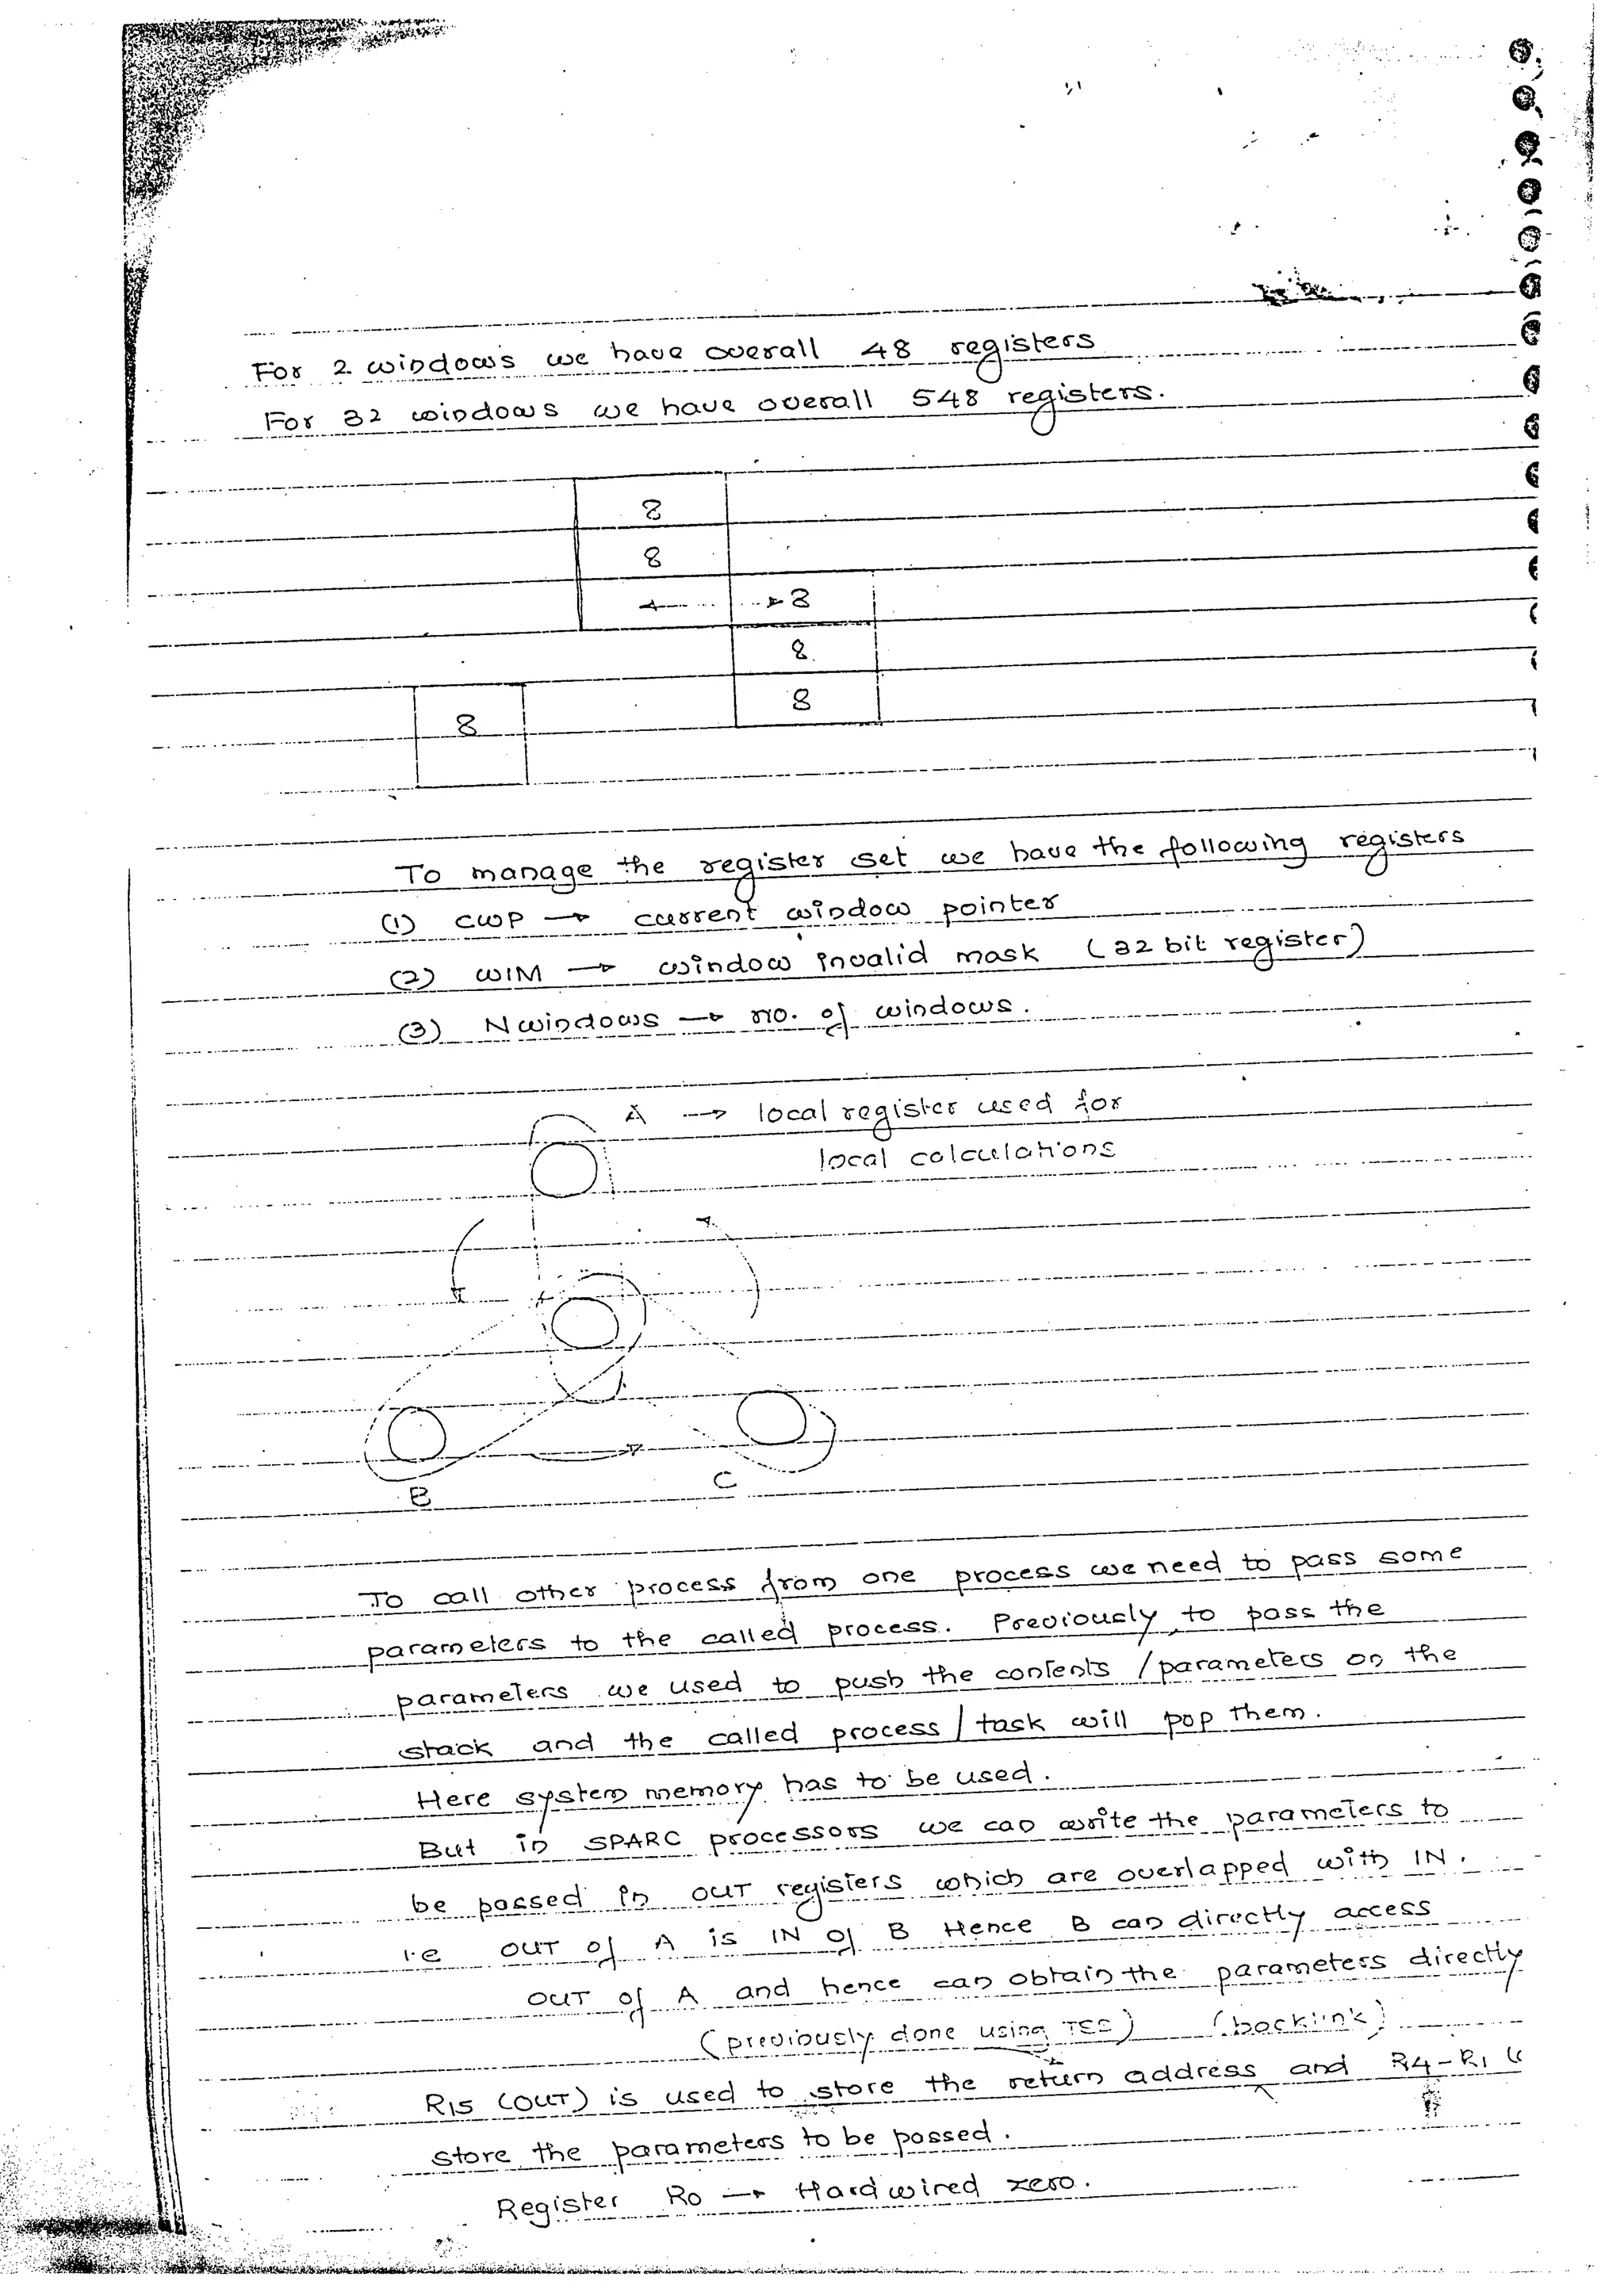 For 2 windows we have overall 48 registers
For 32 windows we have overall 548 registers.
8
8
8
8
8
8
To manage the register set we have the following registers
(1) CWP → current window pointer
(2) WIM → window invalid mask (32 bit register)
(3) Nwindows → no. of windows.
A → local register used for
local calculations
B
C
To call other process from one process we need to pass some
parameters to the called process. Previously, to pass the
parameters we used to push the contents / parameters on the
stack and the called process / task will pop them.
Here system memory has to be used.
But in SPARC processors we can write the parameters to
be passed in OUT registers which are overlapped with IN.
i.e OUT of A is IN of B Hence B can directly access
OUT of A and hence can obtain the parameters directly
(previously done using TSS) (backlink)
R15 (OUT) is used to store the return address and
store the parameters to be passed.
Register R0 → Hardwired zero.